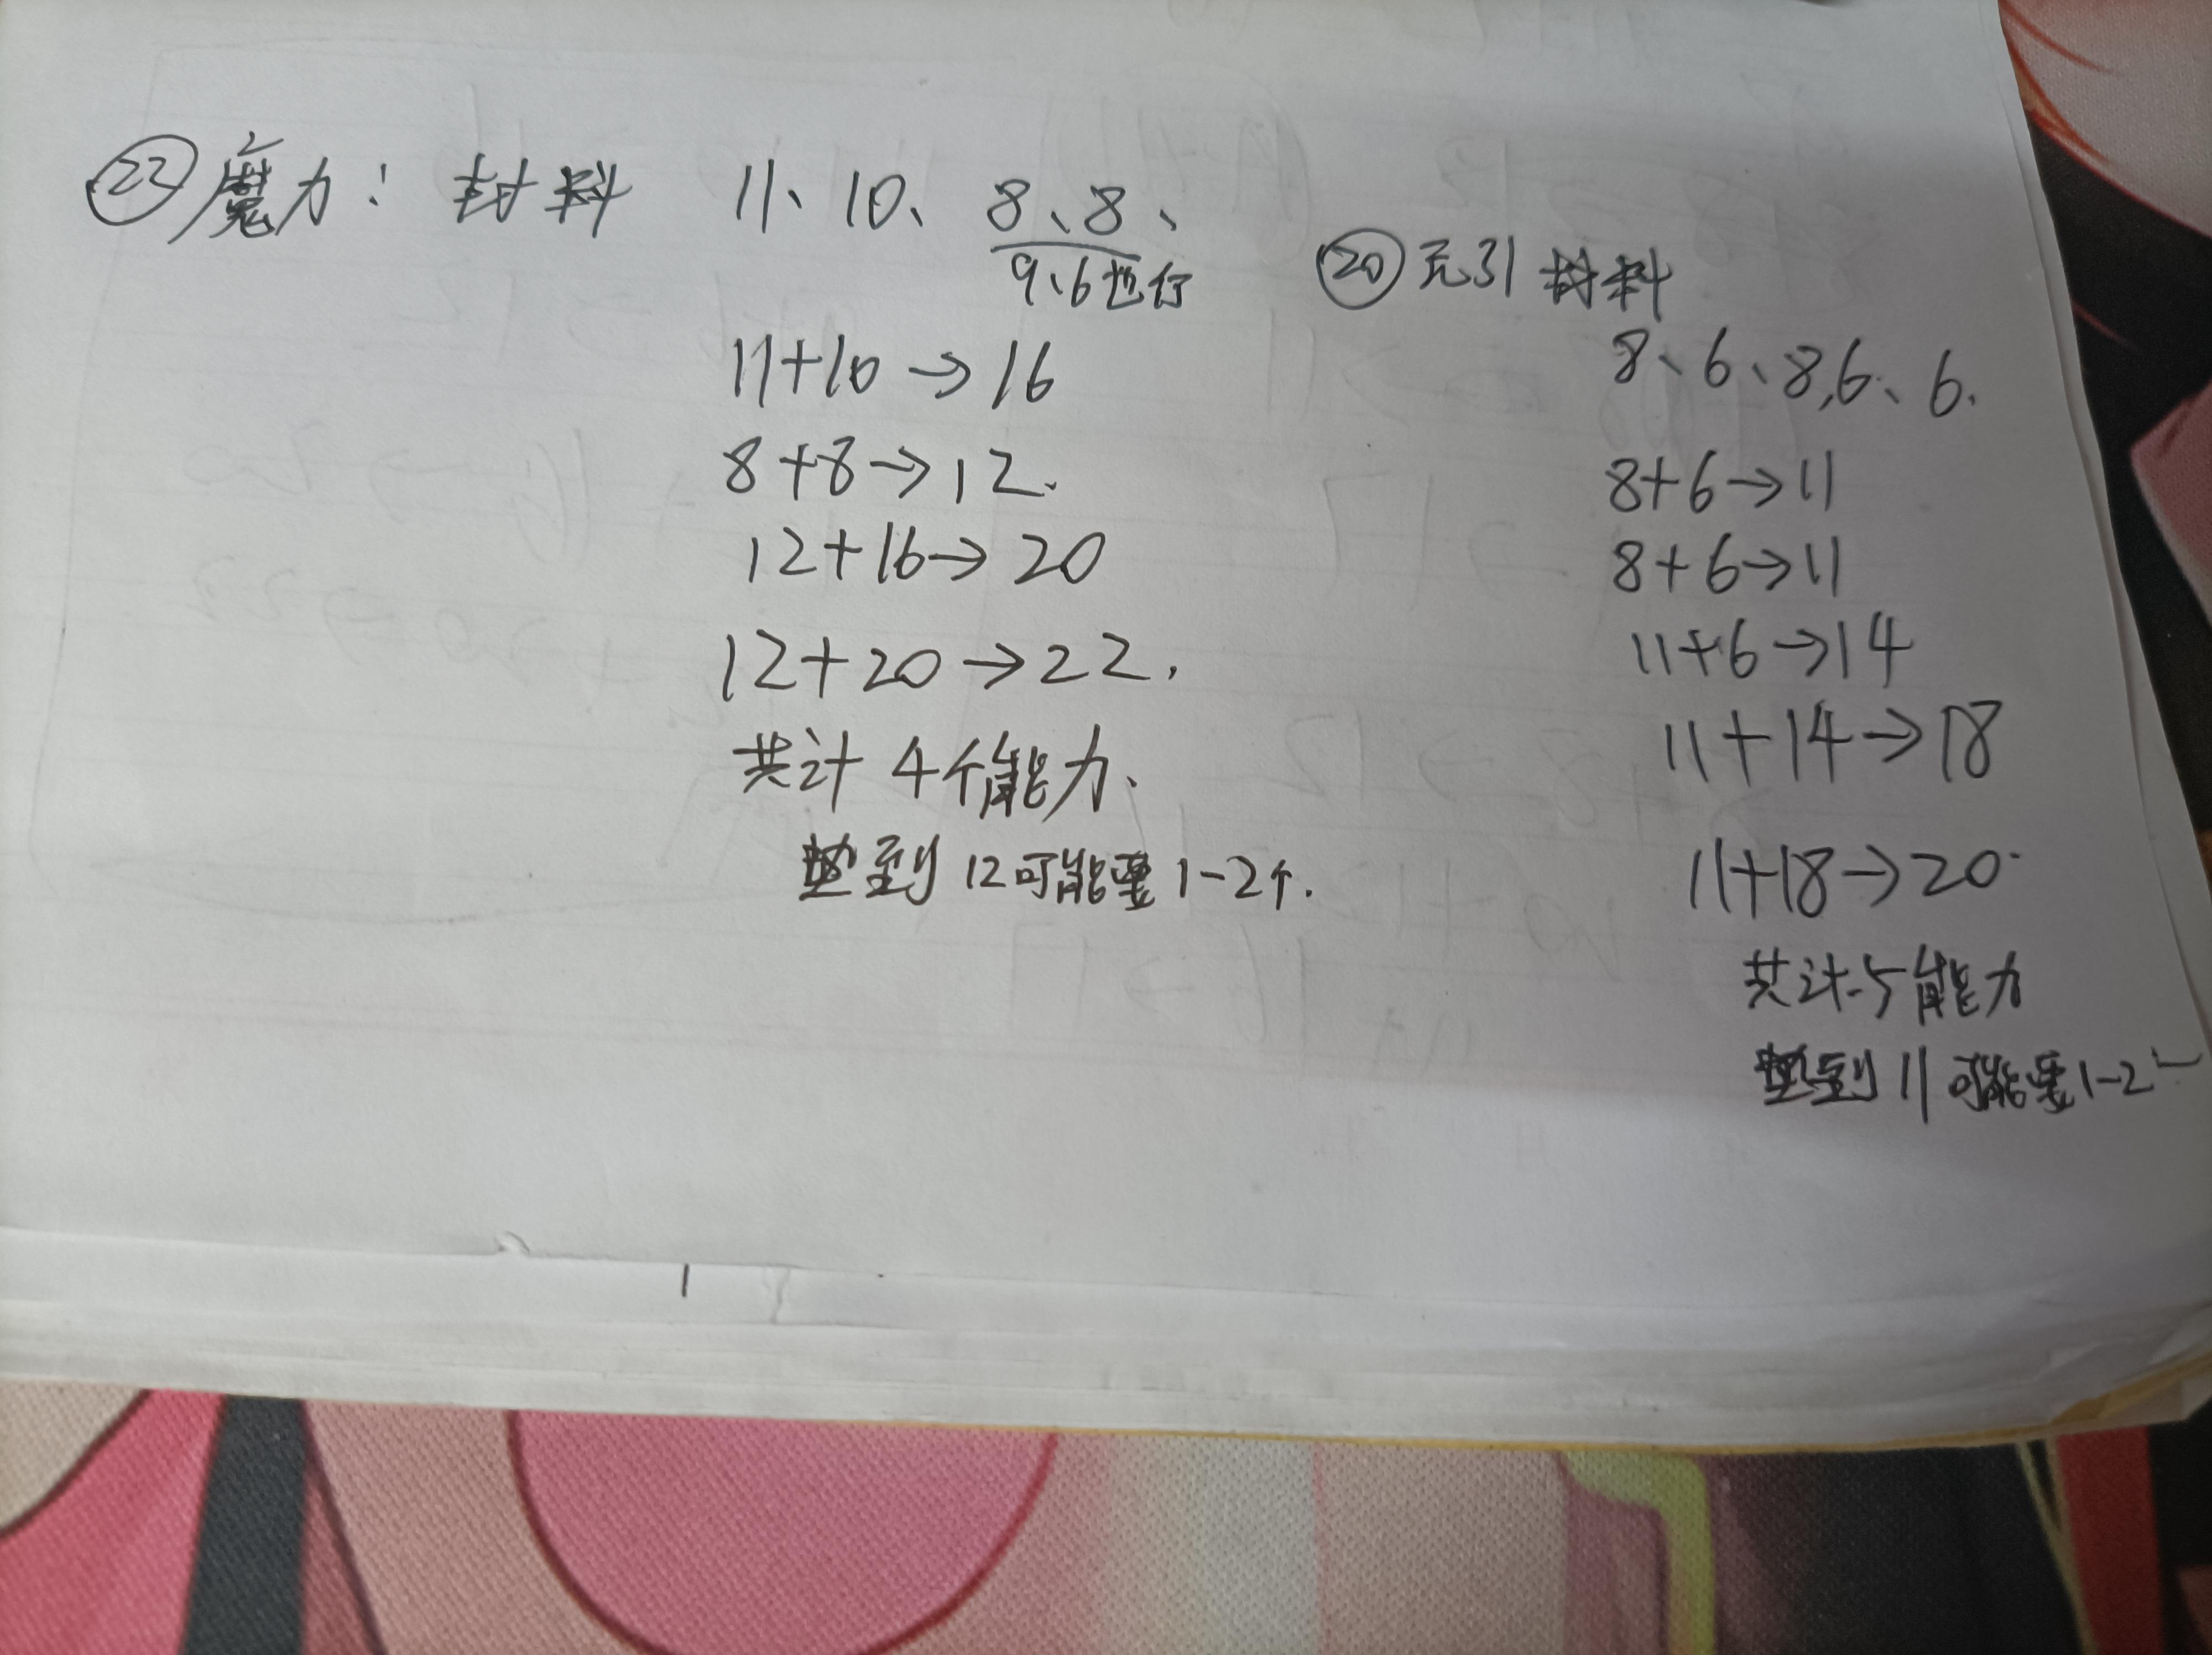 ㉒魔力：封料 11、10、8、8、
9、6也行
11+10→16
8+8→12.
12+16→20
12+20→22.
共计4个能力.
垫到12可能要1-2个.
⑳无引封料
8、6、8,6、6.
8+6→11
8+6→11
11+6→14
11+14→18
11+18→20.
共计5能力
垫到11可能要1-2